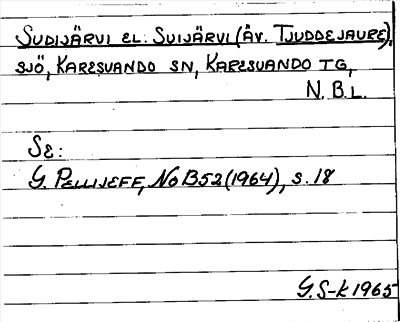 SUDIJÄRVI EL. SUIJÄRVI (ÄV. TJUDDEJAURE),
SJÖ, KARESUANDO SN, KARESUANDO TG,
N.B.L.
SE:
G. PELLIJEFF, NOB 52 (1964), s. 18
G.S-K 1965